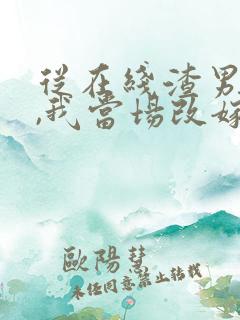 從在綫渣男
,我當場改嫁
歐陽慧
未經同意禁止轉載